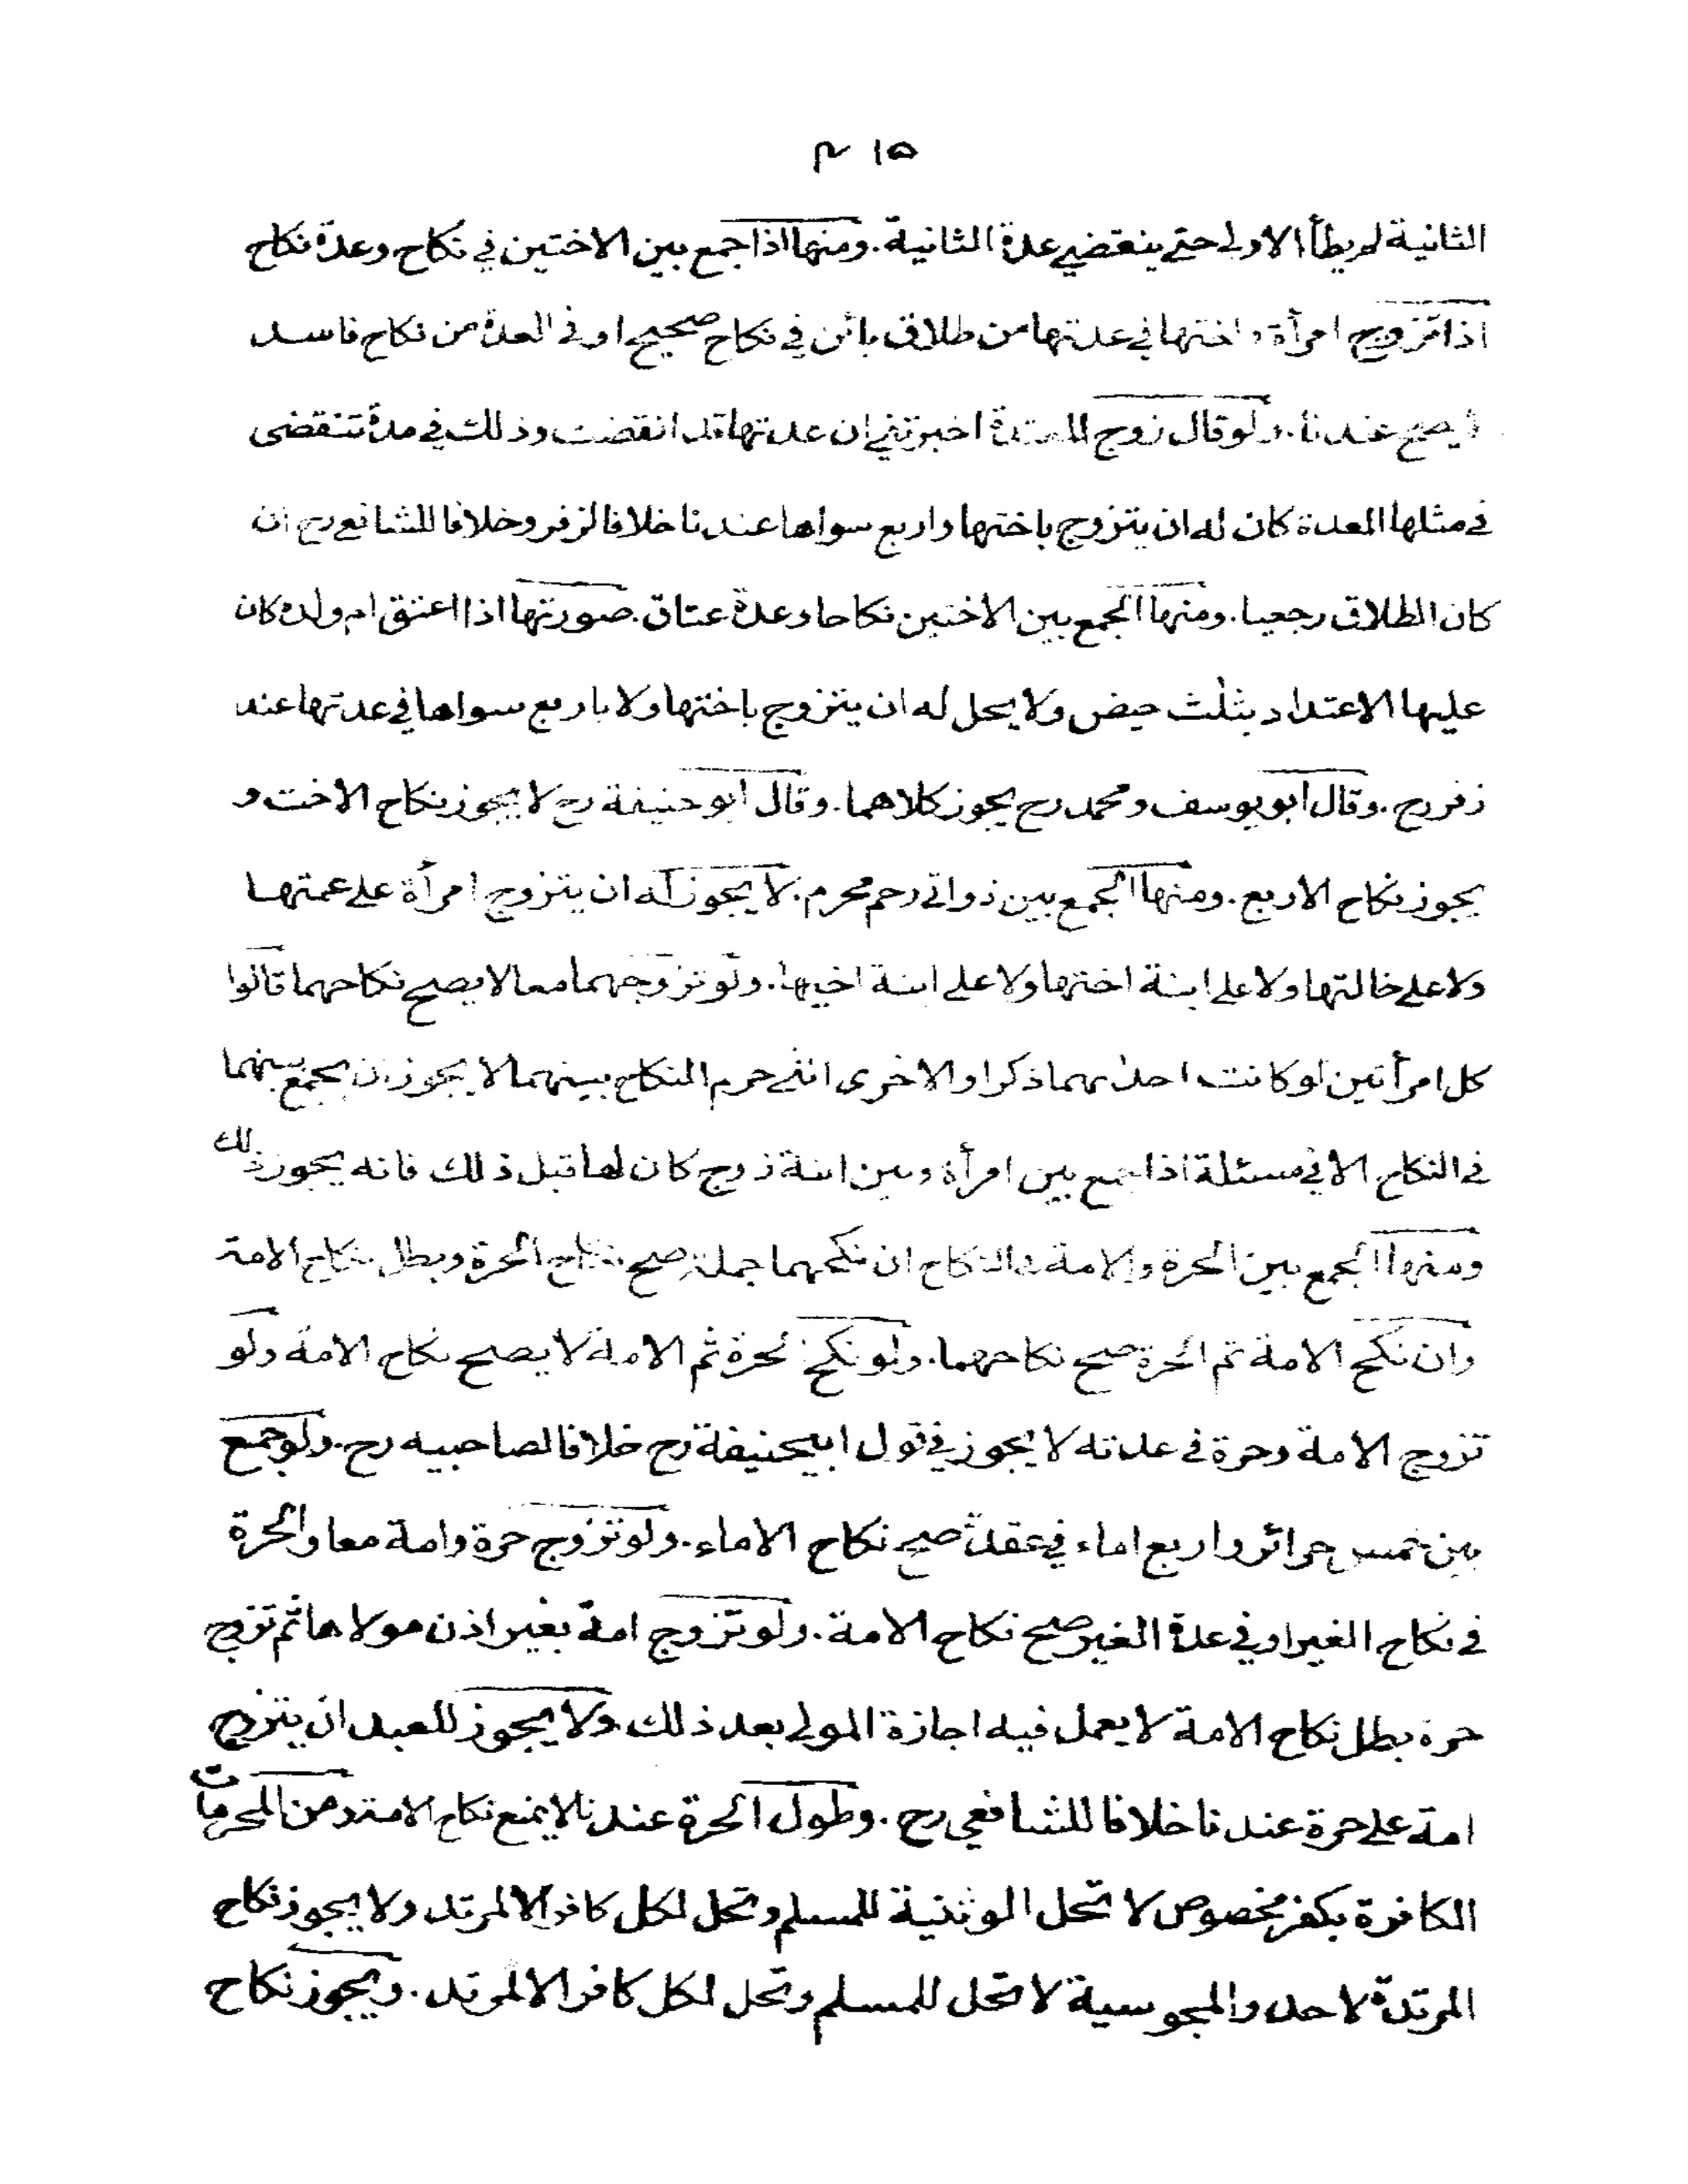 ١٥ م
الثانية لم يطأ الاولى حتى ينقضي عدة الثانية. ومنها اذا جمع بين الاختين في نكاح وعدة نكاح
اذا تزوج امرأة واختها في عدتها من طلاق بائن في نكاح صحيح او في العدة من نكاح فاسد
لا يصح عندنا. ولو قال زوج المعتدة اخبرتني ان عدتها قد انقضت وذلك في مدة تنقضى
في مثلها العدة كان له ان يتزوج باختها واربع سواها عندنا خلافا لزفر وخلافا للشافع رح ان
كان الطلاق رجعيا. ومنها الجمع بين الاختين نكاحا وعدة عتاق. صورتها اذا اعتق ام ولده كان
عليها الاعتداد بثلث حيض ولا يحل له ان يتزوج باختها ولا باربع سواها في عدتها عند
زفر رح. وقال ابو يوسف ومحمد رح يجوز كلاهما. وقال ابو حنيفة رح لا يجوز نكاح الاخت و
يجوز نكاح الاربع. ومنها الجمع بين ذواتي رحم محرم. لا يجوز له ان يتزوج امرأة على عمتها
ولا على خالتها ولا على ابنة اختها ولا على ابنة اخيها. ولو تزوجهما معا لا يصح نكاحهما قالوا
كل امرأتين لو كانت احدٰىهما ذكرا والاخرى انثى حرم النكاح بينهما لا يجوز ان يجمع بينهما
في النكاح الا في مسئلة اذا جمع بين امرأة وبين ابنة زوج كان لها قبل ذلك فانه يجوز ذلك
ومنها الجمع بين الحرة والامة في النكاح ان نكحهما جملة صح نكاح الحرة وبطل نكاح الامة
وان نكح الامة ثم الحرة صح نكاحهما. ولو نكح الحرة ثم الامة لا يصح نكاح الامة ولو
تزوج الامة وحرة في عدته لا يجوز في قول ابيحنيفة رح خلافا لصاحبيه رح. ولو جمع
بين خمس حرائر واربع اماء في عقدة صح نكاح الاماء. ولو تزوج حرة وامة معا والحرة
في نكاح الغير او في عدة الغير صح نكاح الامة. ولو تزوج امة بغير اذن مولاها ثم تزوج
حرة بطل نكاح الامة لا يعمل فيه اجازة المولى بعد ذلك ولا يجوز للعبد ان يتزوج
امة على حرة عندنا خلافا للشافعي رح. وطول الحرة عندنا لا يمنع نكاح الامة ومن المحرمات
الكافرة بكفر مخصوص لا تحل الوثنية للمسلم وتحل لكل كافر الا المرتد ولا يجوز نكاح
المرتدة لاحد والمجوسية لا تحل للمسلم وتحل لكل كافر الا المرتد. ويجوز نكاح